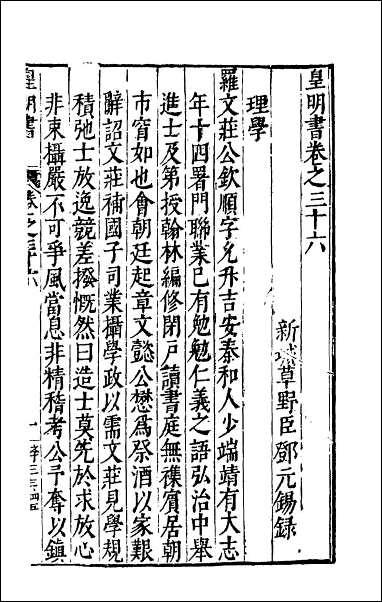 皇明書卷之三十六
新城草野臣鄧元錫錄
理學
羅文莊公欽順字允升吉安泰和人少端靖有大志
年十四署門聯業已有勉勉仁義之語弘治中舉
進士及第授翰林編修閉戶讀書庭無襍賓居朝
市窅如也會朝廷起章文懿公懋為祭酒以家艱
辭詔文莊補國子司業攝學政以需文莊見學規
積弛士放逸競差撥慨然曰造士莫先於求放心
非束攝嚴不可爭風當息非精稽考公予奪以鎮
皇明書
卷之三十六
一